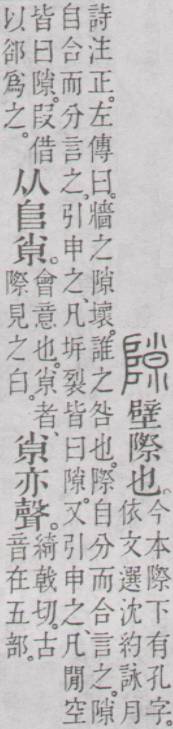 隙
壁際也。
今本際下有孔字。
依文選沈約詠月
詩注正。左傳曰。牆之隙壞。誰之咎也。際自分而合言之。隙
自合而分言之。引申之、凡坼裂皆曰隙。又引申之、凡閒空
皆曰隙。叚借
以郤爲之。
从𨸏𡭴。
會意也。𡭴者、
際見之白。
𡭴亦聲。
綺戟切。古
音在五部。